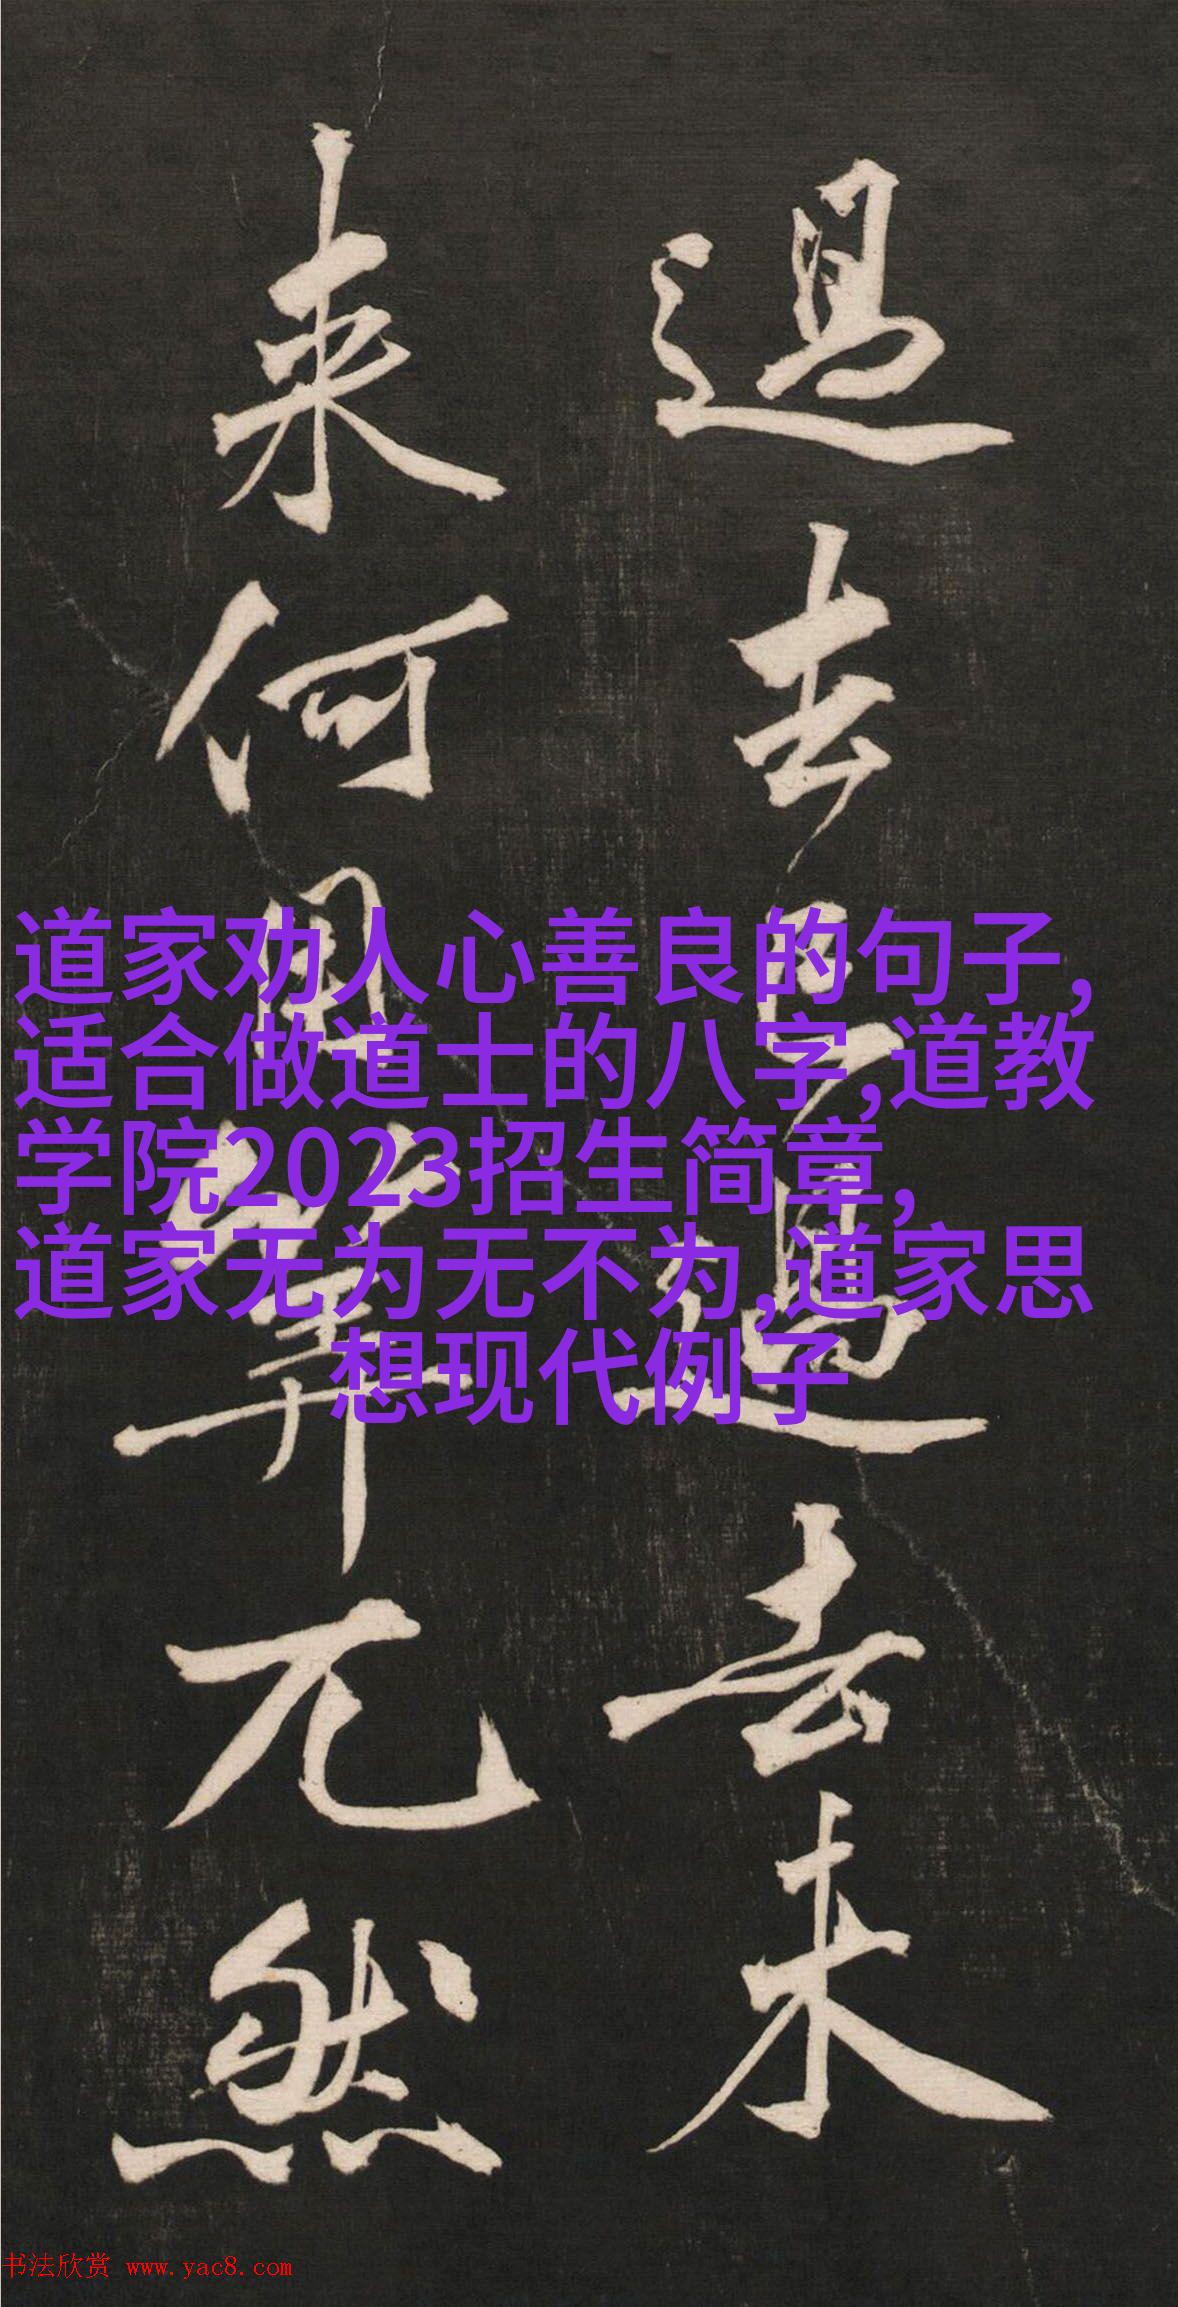 過去已過去未
来何筭兀然
道家劝人心善良的句子,
适合做道士的八字,道教
学院2023招生简章,
道家无为无不为,道家思
想现代例子
书法欣赏 www.yac8.com